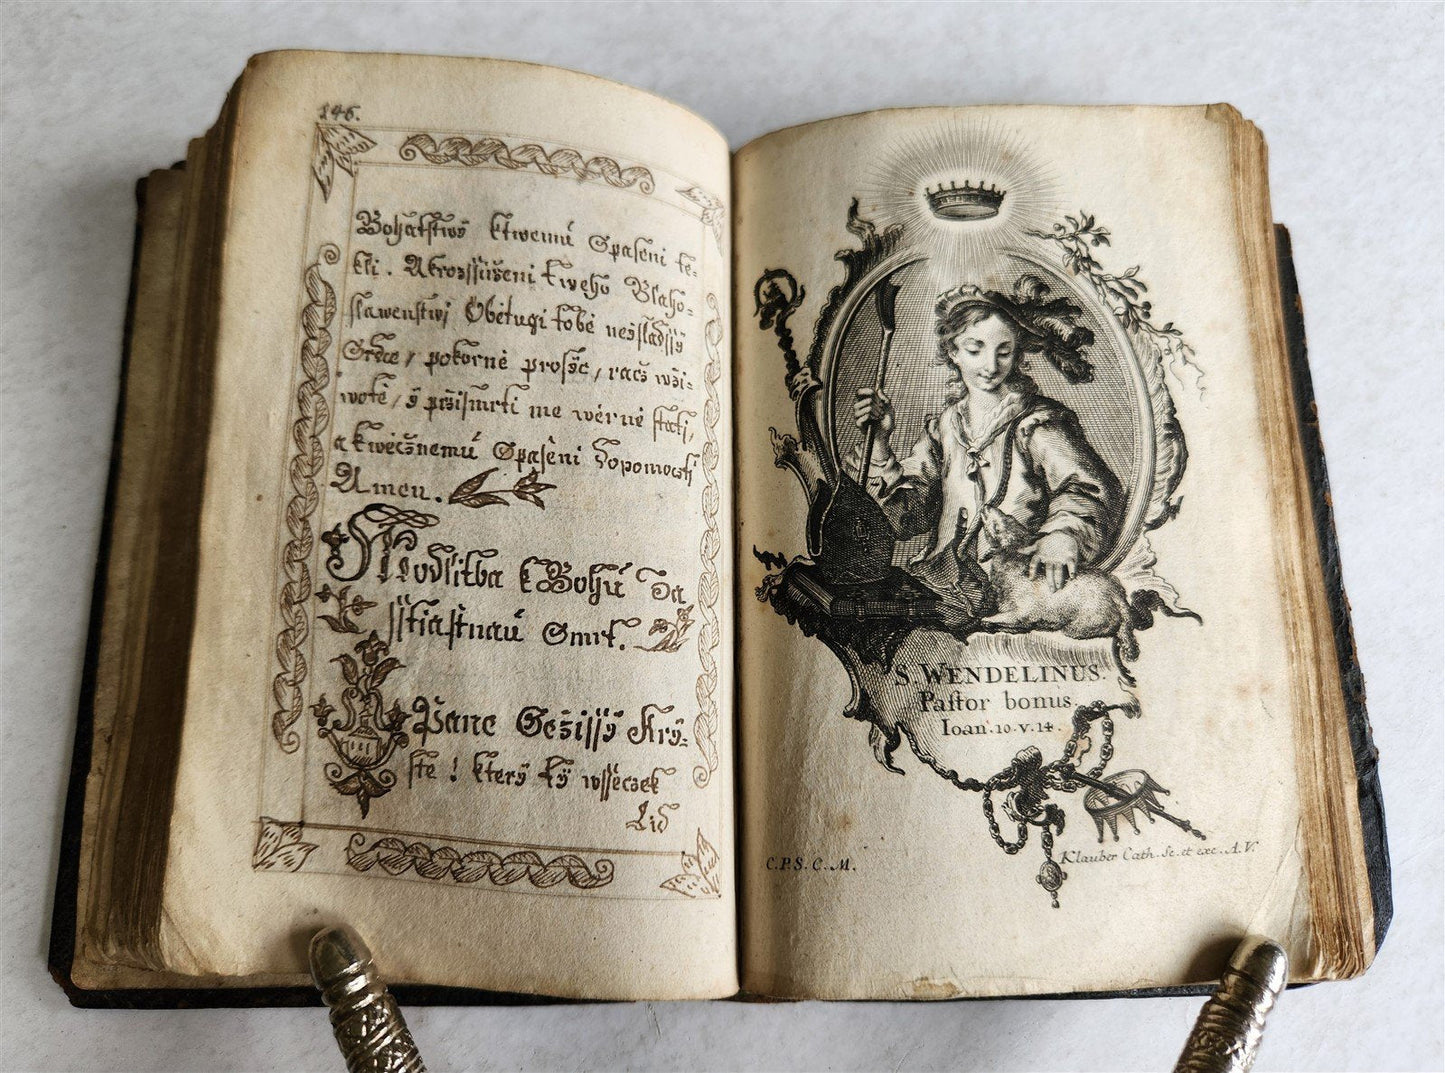 146.
Bohatstwỳ ktwemú Spaseni te-
kli. A krozssiřeni twého Blaho-
slawenstwj Obětugi tobě neysladssy
Srdce / pokorně prosyc / racž wżi-
wotě / ÿ přzismrti me wěrně stati,
a kwěcžnemú Spaseni dopomocti
Amen.
Modlitba k Bohú Za
sstiastnaú Smrt.
Pane Gežissÿ Kry-
ste ! kterÿ tÿ wssecžek
Lid
S. WENDELINUS.
Paſtor bonus.
Ioan. 10. v. 14.
C. P. S. C. M.
Klauber Cath. Sc. et exc. A. V.